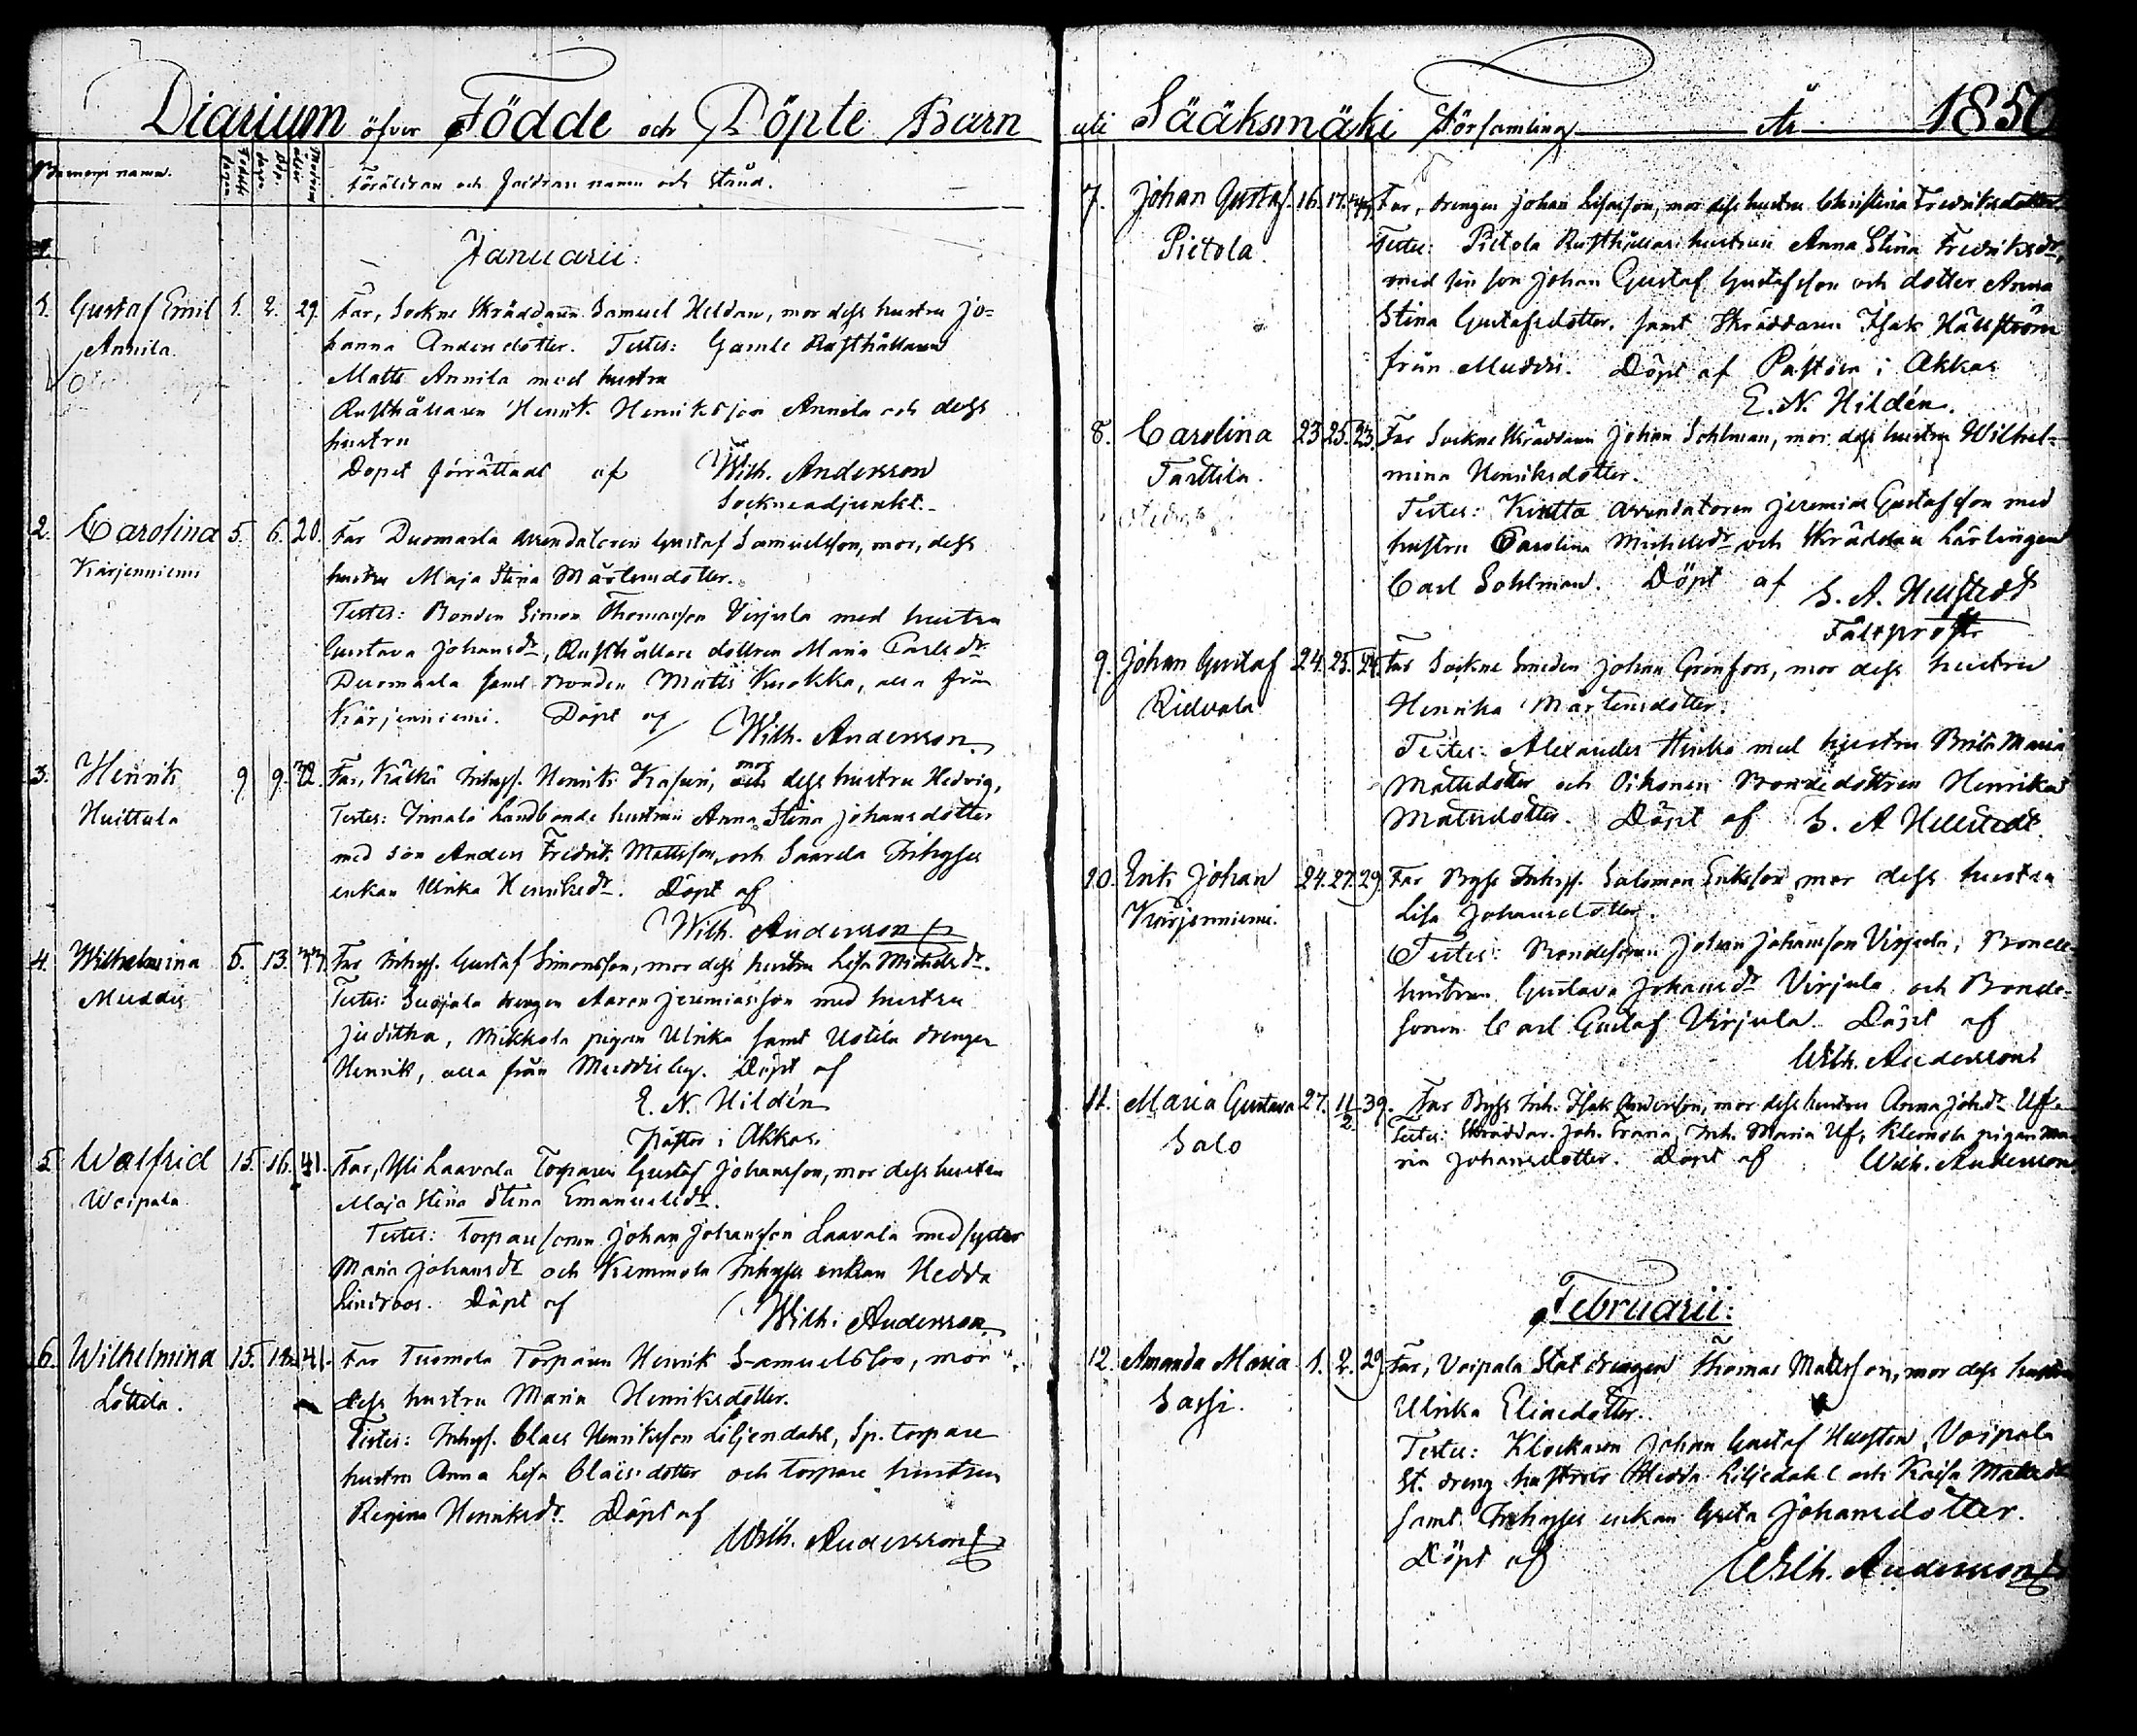 Diarium öfver Födde och Döpte Barn
Barnens namn. Födelse dagen Döp. dagen Modrens ålder Föräldrars och Faddrars namn och stånd.
Januarii:
1. Gustaf Emil 1. 2. 29. Far, Sockne Skräddaren Samuel Heldan, mor dess hustru Jo=
Annila. hanna Andersdotter. Testes: Gamle Rusthållaren
Matts Annila med hustru
Rusthållaren Henrik Henriksson Annila och dess
hustru
Dopet förrättadt af Wilh. Andersson
Sockneadjunkt.
2. Carolina 5. 6. 20. Far Duomarla arrendatoren Gustaf Samuelsson, mor, dess
Kärjenniemi hustru Maja Stina Mårtensdotter.
Testes: Bonden Simon Thomasson Virjula med hustru
Gustava Johansdr, Rusthållare dottren Maria Carlsdr
Duomarla samt Bonden Matts Knokka, alla från
Kärjenniemi. Döpt af Wilh. Andersson
3. Henrik 9 9. 42. Far, Kälkä Inhys. Henrik Kasuri, mor dess hustru Hedvig,
Huittula Testes: Innala Landbonde hustrun Anna Stina Johansdotter
med son Anders Fredrik Mattsson, och Saarela Inhyses
enkan Ulrika Henriksdr. Döpt af
Wilh. Andersson
4. Wilhelmina 5. 13. Far Inhys. Gustaf Simonsson, mor dess hustru Lisa Michelsdr.
Muddis Testes: Suojala drengen Aaron Jeremiasson med hustru
Juditha, Mikkola pigan Ulrika samt Ustila drengen
Henrik, alla från Muddis by. Döpt af
E. N. Hildén
Pastor i Akkas.
5. Walfrid 15. 16. 41. Far, Yli Laavala Torparen Gustaf Johansson, mor dess hustru
Woipala Maja Stina Stina Emanuelsdr.
Testes: Torparesonen Johan Johansson Laavala med syster
Maria Johansdr och Kemmola Inhyses enkan Hedda
Lindroos. Döpt af Wilh. Andersson
6. Wilhelmina 15. 18. 41. Far Tuomola Torparen Henrik Samuelsson, mor
Lottila. dess hustru Maria Henriksdotter.
Testes: Inhys. Claes Henriksson Liljendahl, Sp. torpare
hustru Anna Lisa Claësdotter och torpare hustrun
Regina Henriksdr. Döpt af
Wilh. Andersson
uti Sääksmäki Församling År 1850
7. Johan Gustaf. 16. 17. Far, drengen Johan Lisasson, mor dess hustru Christina Fredriksdotter.
Pietola. Testes: Pietola Rusthållarehustrun Anna Stina Fredriksdr,
med sin son Johan Gustaf Gustafsson och dotter Anna
Stina Gustafsdotter. samt Skräddaren Isak Hällström
från Muddis. Döpt af Pastorn i Akkas
E. N. Hildén.
8. Carolina 23 25. 23. Far Sockne Skräddaren Johan Sohlman, mor dess hustru Wilhel=
Tarttila. mina Henriksdotter.
Testes: Knutta arrendatoren Jeremias Gustafsson med
hustru Carolina Michelsdr och Skräddare Lärlingen
Carl Sohlman. Döpt af S. A. Hellstedt
Fältprost.
9. Johan Gustaf 24. 25. 24. Far Sockne Smeden Johan Grönfors, mor dess hustru
Ridvala Henrika Mårtensdotter.
Testes: Alexander Hinka med hustru Brita Maria
Mattsdotter och Oikonen Bondedottren Henrika
Mattsdotter. Döpt af S. A Hellstedt.
10. Erik Johan 24. 27. 29. Far Bys Inhys. Salomon Eriksson mor dess hustru
Kärjenniemi. Lisa Johansdotter.
Testes: Bondesonen Johan Johansson Virjula, Bonde-
hustrun Gustava Johansdr Virjula och Bonde-
sonen Carl Gustaf Virjula. Döpt af
Wilh. Andersson
11. Maria Gustava 27. 11/2 39. Far Bys Inh. Isak Andersson, mor dess hustru Anna Johdr Uf.
Salo Testes: Skräddar. Joh. Inh. Maria Uf, Kleemola pigan Ma-
ria Johansdotter. Döpt af Wilh. Andersson
Februarii:
12. Amanda Maria 1. 2. 29. Far, Voipala Stat drengen Thomas Mattsson, mor dess hustru
Sassi. Ulrika Eliaedotter.
Testes: Klockaren Johan Gustaf Hellsten, Voipala
St. dreng hustrur Hedda Liljedahl och Kaisa Mattsdr
samt Inhyses enkan Greta Johansdotter.
Döpt af Wilh. Andersson